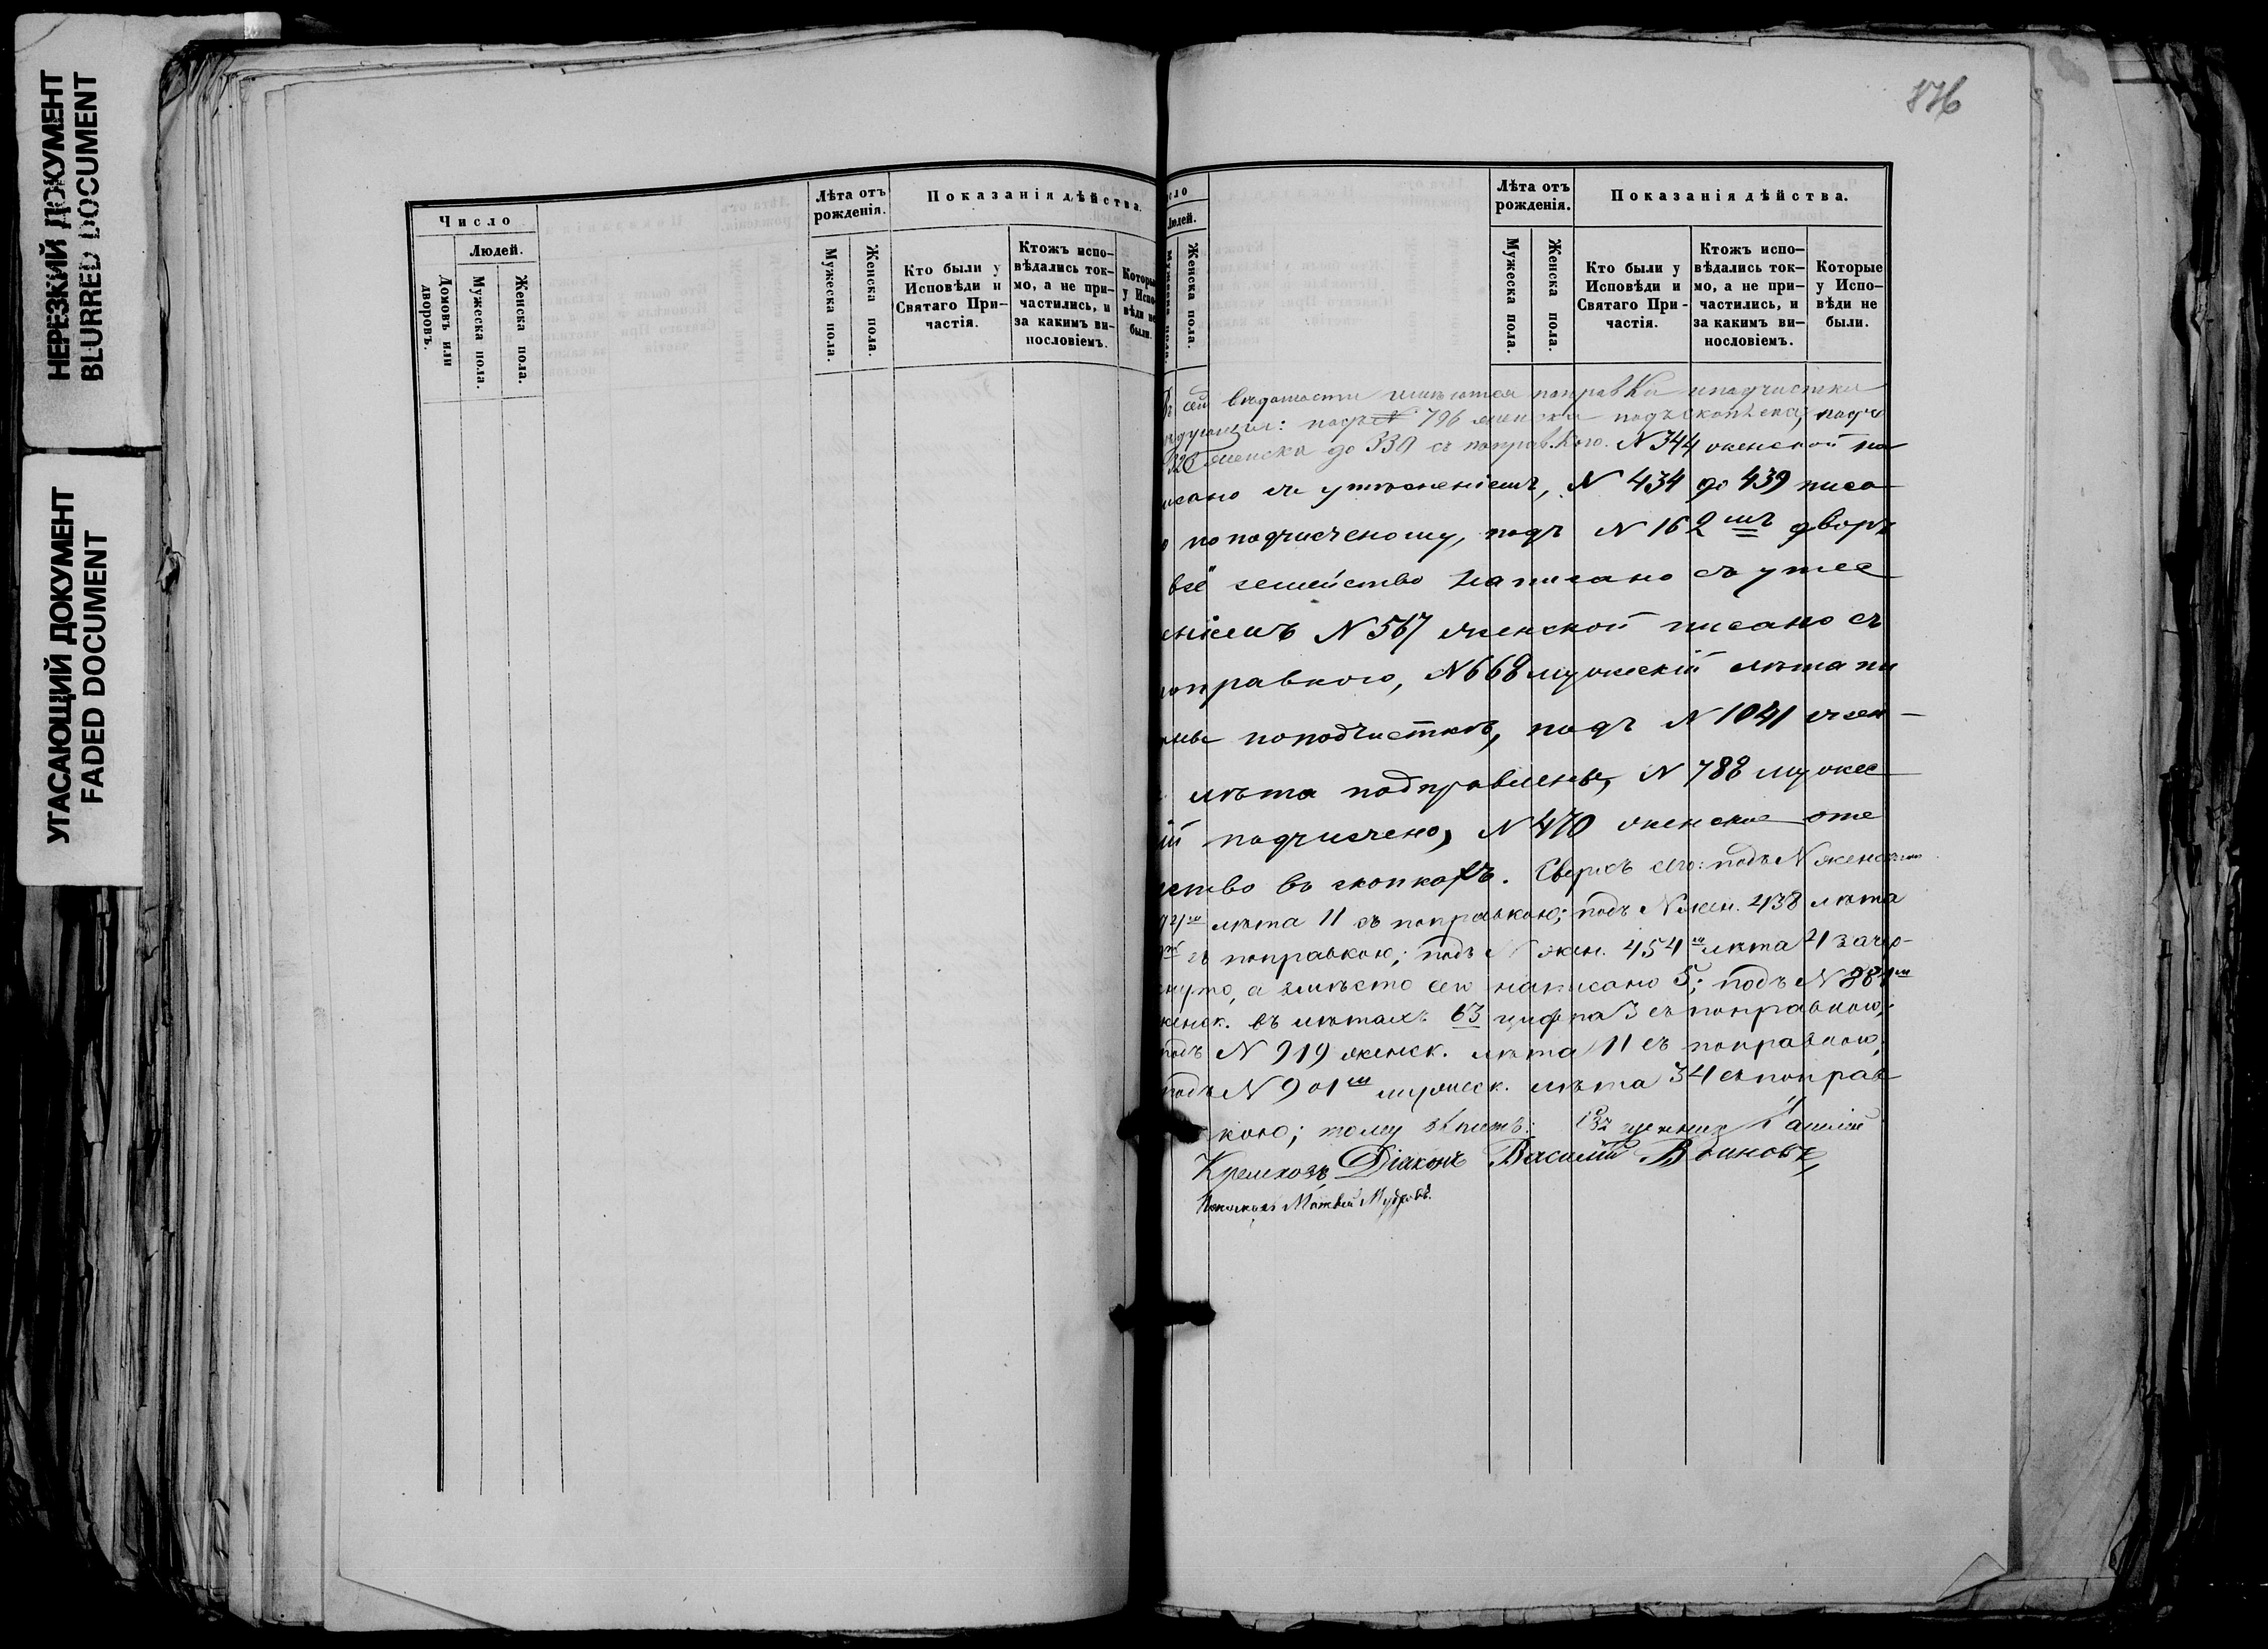 НЕРЕЗКИЙ ДОКУМЕНТ
BLURRED DOCUMENT
УГАСАЮЩИЙ ДОКУМЕНТ
FADED DOCUMENT
Число
Людей.
Домовъ или дворовъ.
Мужеска пола.
Женска пола.
Лѣта отъ рожденія.
Мужеска пола.
Женска пола.
Показанія дѣйства.
Кто были у Исповѣди и Святаго Причастія.
Ктожъ исповѣдались токмо, а не причастились, и за какимъ винословіемъ.
Которые у Исповѣди не были.
876
сло
Людей.
Мужеска пола.
Женска пола.
Лѣта отъ рожденія.
Мужеска пола.
Женска пола.
Показанія дѣйства.
Кто были у Исповѣди и Святаго При-частія.
Ктожъ испо-вѣдались ток-мо, а не при-частились, и за какимъ ви-нословіемъ.
Которые у Испо-вѣди не были.
сей вѣдомости имѣются поправки и подчистки
дующія: 796 женска подскоблена, подъ
326 женска до 330 съ поправкою. N 344 женской на
исано съ утѣсненіемъ, N 434 до 439 писа
по подчисченому, подъ N 162 мъ дворѣ
всё семейство написано съ утес
еніемъ N 567 женской писано съ
поправкою, N 668 мужескій лѣта пи
аны поподчисткѣ, подъ N 1041 жен-
лѣта подправлены, N 788 мужес
ій подчисчено, N 470 женское оте
ество въ скопкахъ. Сверхъ сего: подъ N женскимъ
лѣта 11 съ поправкою; подъ N жен. 438 лѣта
съ поправкою; подъ N жен. 454 мъ лѣта 4 зачер-
кнуто, а вмѣсто сего написано 5; подъ N 881 мъ
женск. въ лѣтахъ 63 цифра 3 съ поправкою;
подъ N 919 женск. лѣта 11 съ поправкою;
подъ N 901 мъ мужеск. лѣта 34 съ поправ
кою; тому вѣрить:
Діаконъ Василій Воиновъ,
Матвей Мудровъ.